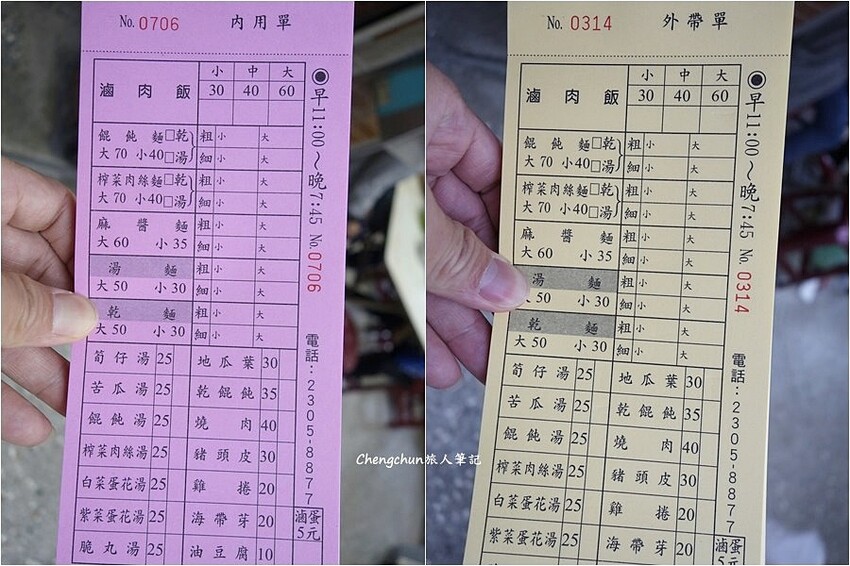 No. 0706 內用單
滷肉飯 小 中 大
30 40 60
餛飩麵 □乾 粗 小 大
大 70 小 40 □湯 細 小 大
榨菜肉絲麵 □乾 粗 小 大
大 70 小 40 □湯 細 小 大
麻醬麵 粗 小 大
大 60 小 35 細 小 大
湯麵 粗 小 大
大 50 小 30 細 小 大
乾麵 粗 小 大
大 50 小 30 細 小 大
筍仔湯 25 地瓜葉 30
苦瓜湯 25 乾餛飩 35
餛飩湯 25 燒肉 40
榨菜肉絲湯 25 豬頭皮 30
白菜蛋花湯 25 雞捲 20
紫菜蛋花湯 25 海帶芽 20
脆丸湯 25 油豆腐 10
滷蛋
5元
◉早11:00~晚7:45 No. 0706
電話:2305-8877
No. 0314 外帶單
滷肉飯 小 中 大
30 40 60
餛飩麵 □乾 粗 小 大
大 70 小 40 □湯 細 小 大
榨菜肉絲麵 □乾 粗 小 大
大 70 小 40 □湯 細 小 大
麻醬麵 粗 小 大
大 60 小 35 細 小 大
湯麵 粗 小 大
50 小 30 細 小 大
乾麵 粗 小 大
大 50 小 30 細 小 大
筍仔湯 25 地瓜葉 30
苦瓜湯 25 乾餛飩 35
餛飩湯 25 燒肉 40
榨菜肉絲湯 25 豬頭皮 30
白菜蛋花湯 25 雞捲 20
紫菜蛋花湯 25 海帶芽 20
滷蛋
5元
◉早11:00~晚7:45 No. 0314
電話:2305-8877
Chengchun旅人筆記